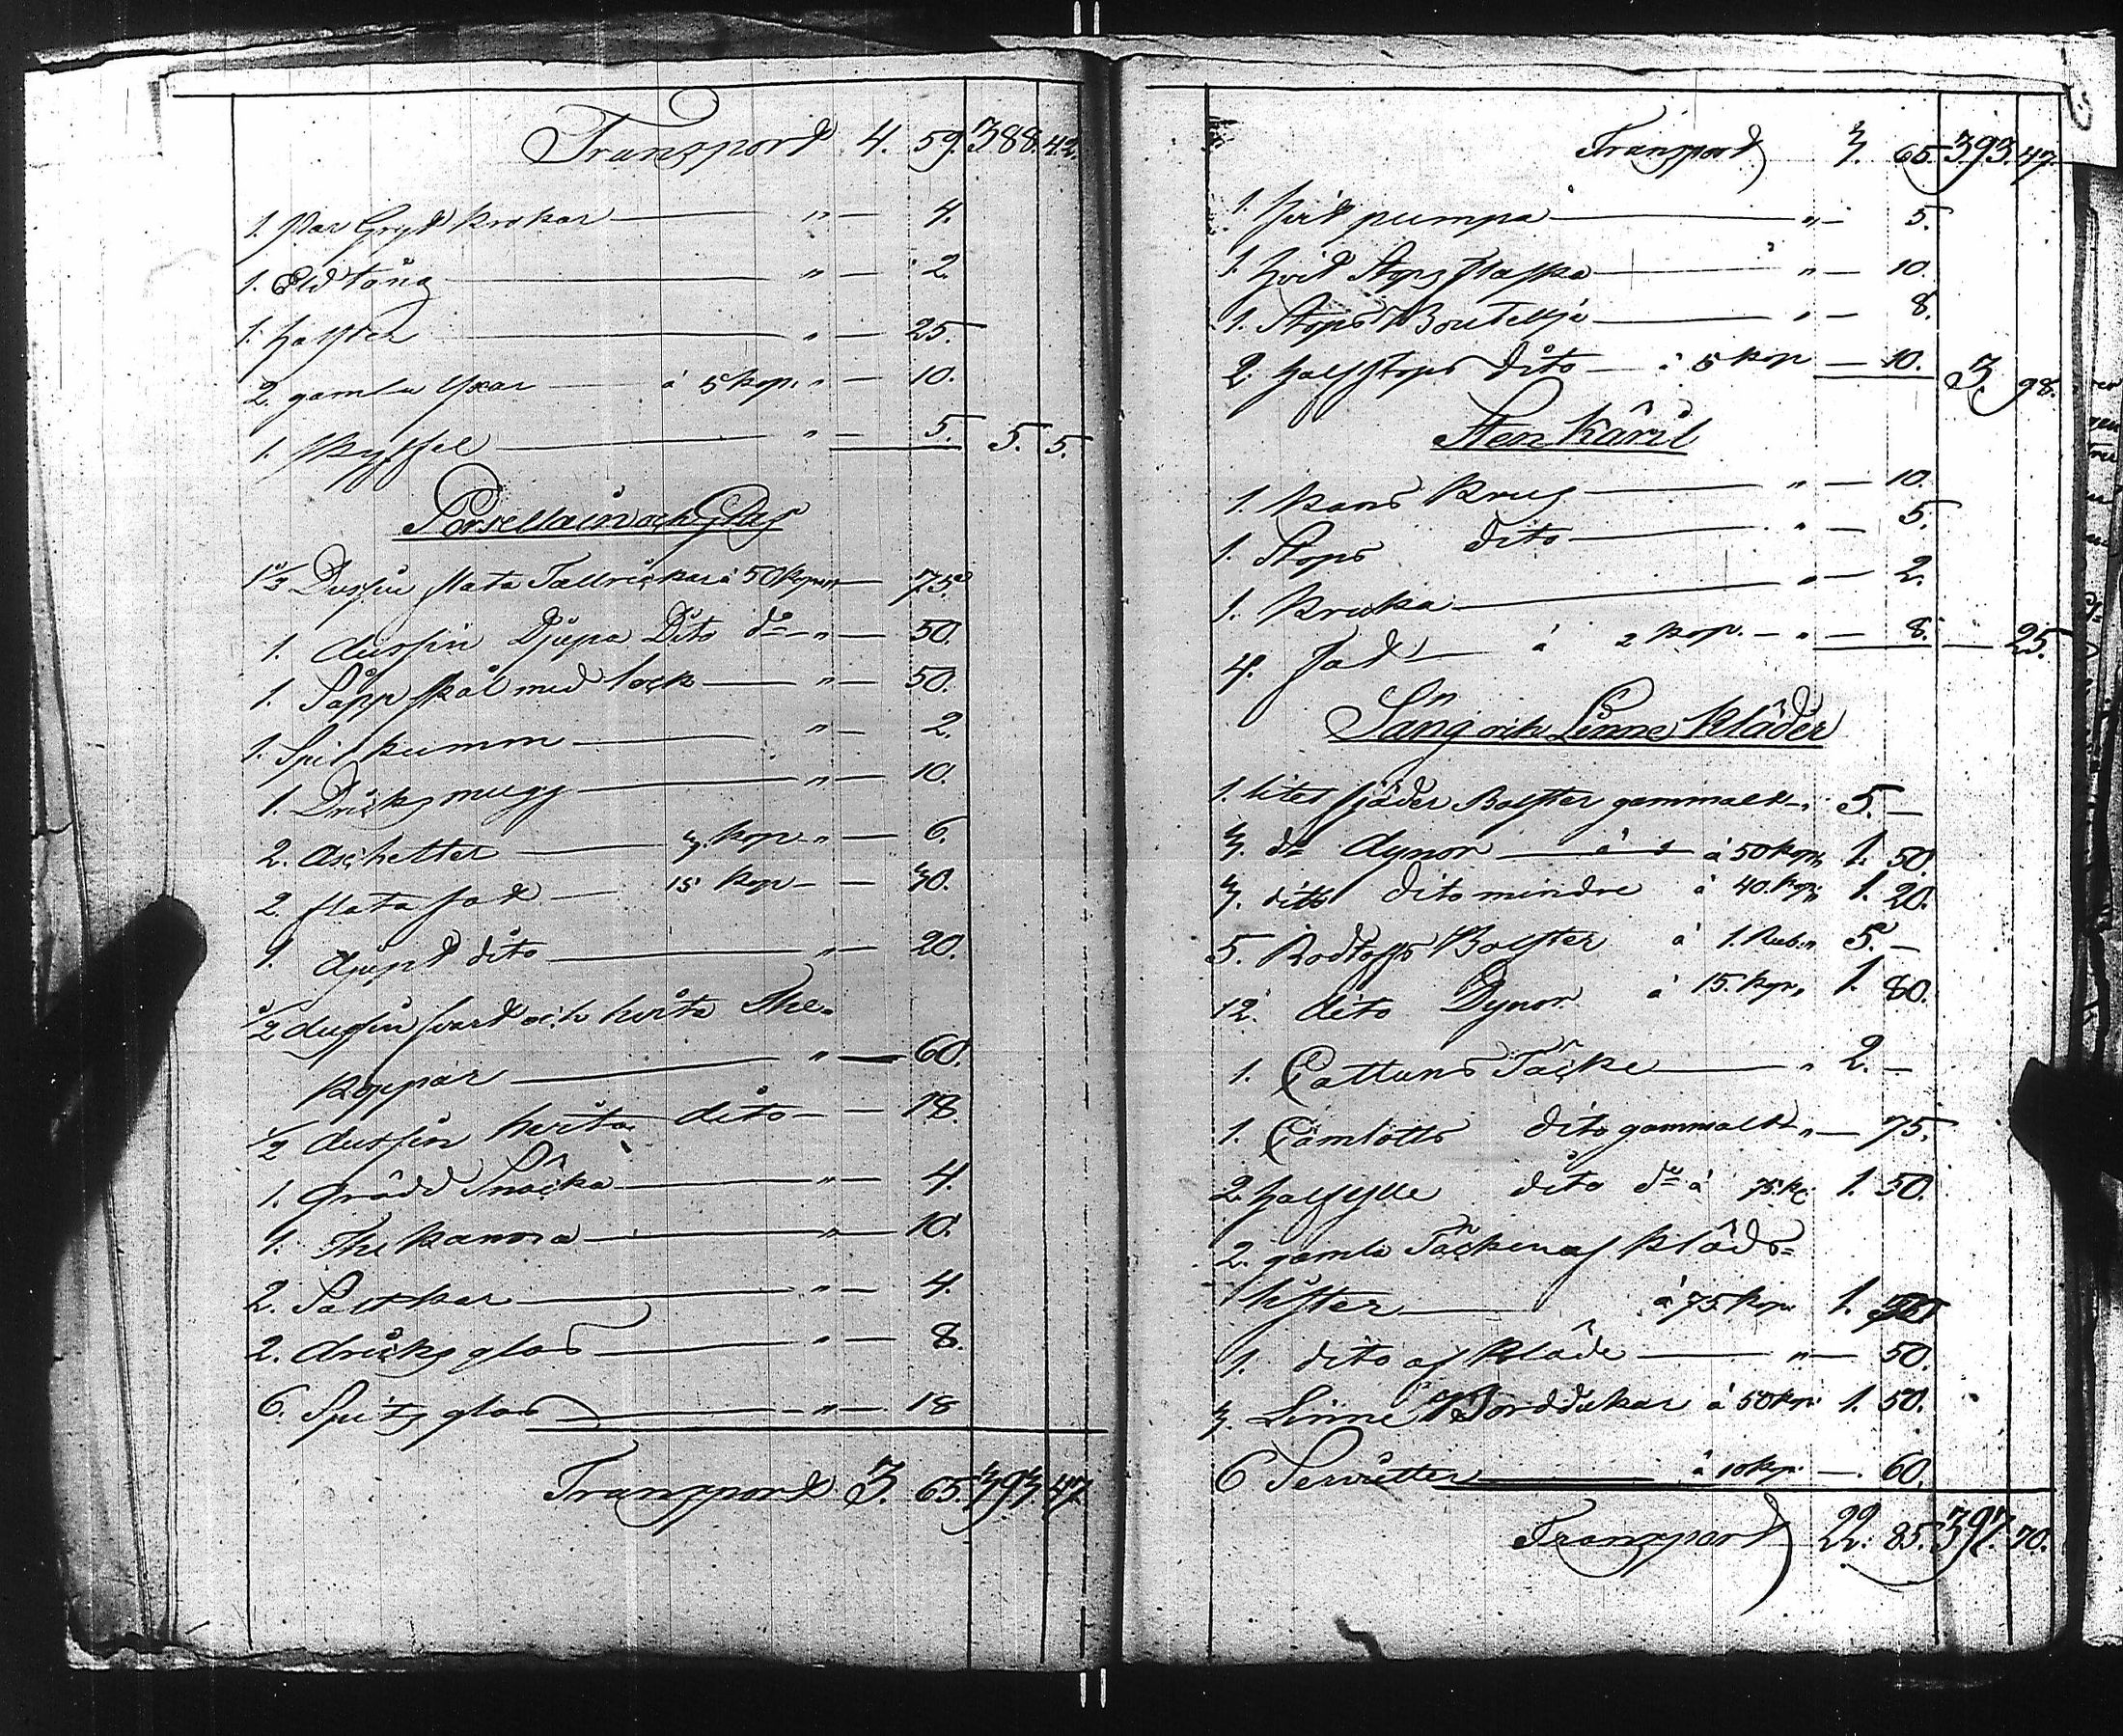 Transport 4. 59. 388. 42.
1. Par Gryt krokar — " — 4.
1. Eldtång — " — 2.
1. halster — " — 25.
2. gamla yxar — à 5 kop. " — 10.
1. Skyffel — " — 5. 5. 5.
Porsellain och Glas
1 1/2 Dussin flata Tallrickar à 50 kop. " — 75.
1. dussin Djupa Dito do — " — 50.
1. Såpp skål med lock — " — 50.
1. Spil kumm — " — 2.
1. Dricks mugg — " — 10.
2. Aschetter — 3. kop. " — 6.
2. flata fat — 15 kop — — 30.
1. djupt dito — " — 20.
1/2 dussin svart och hvita The-
koppar — " — 60.
1/2 dussin hvita dito — — 18.
1. Grädd Snäcka — " — 4.
1. The kanna — " — 10.
2. Salt kar — " — 4.
2. dricks glas — " — 8.
6. Spits glas — " — 18
Transport 3. 65. 393. 47.
Transport 3. 65. 393. 47.
1. hvit pumpa — " — 5.
1. hvit Stops flaska — " — 10.
1. Stops Boutellje — " — 8.
2. halfstops dito — à 5 kop — 10. 3. 98.
Sten Käril
1. Kans Krus — " — 10.
1. Stops dito — " — 5.
1. Kruka — " — 2.
4. fat — à 2 kop. — " — 8. — 25.
Säng och Linne Kläder
1. litet fjäder Bolster gammalt " 5. —
3. do dynor — à 50 kop. 1. 50.
3. ditto dito mindre à 40. kop. 1. 20.
5. Bolster à 1. Rub. " 5. —
12. dito Dynor à 15. kop. " 1. 80.
1. Cattuns Täcke — " 2. —
1. Camlotts dito gammalt " — 75.
2. halfylle dito do à 75. k. 1. 50.
2. gamla Täcken af Kläds-
lister — à 75 kop. 1. 50
1. dito af Kläde — " — 50.
3. Linne Borddukar à 50 kop. 1. 50.
6 Servietter — à 10 kop. — 60.
Transport 22. 85. 397. 70.